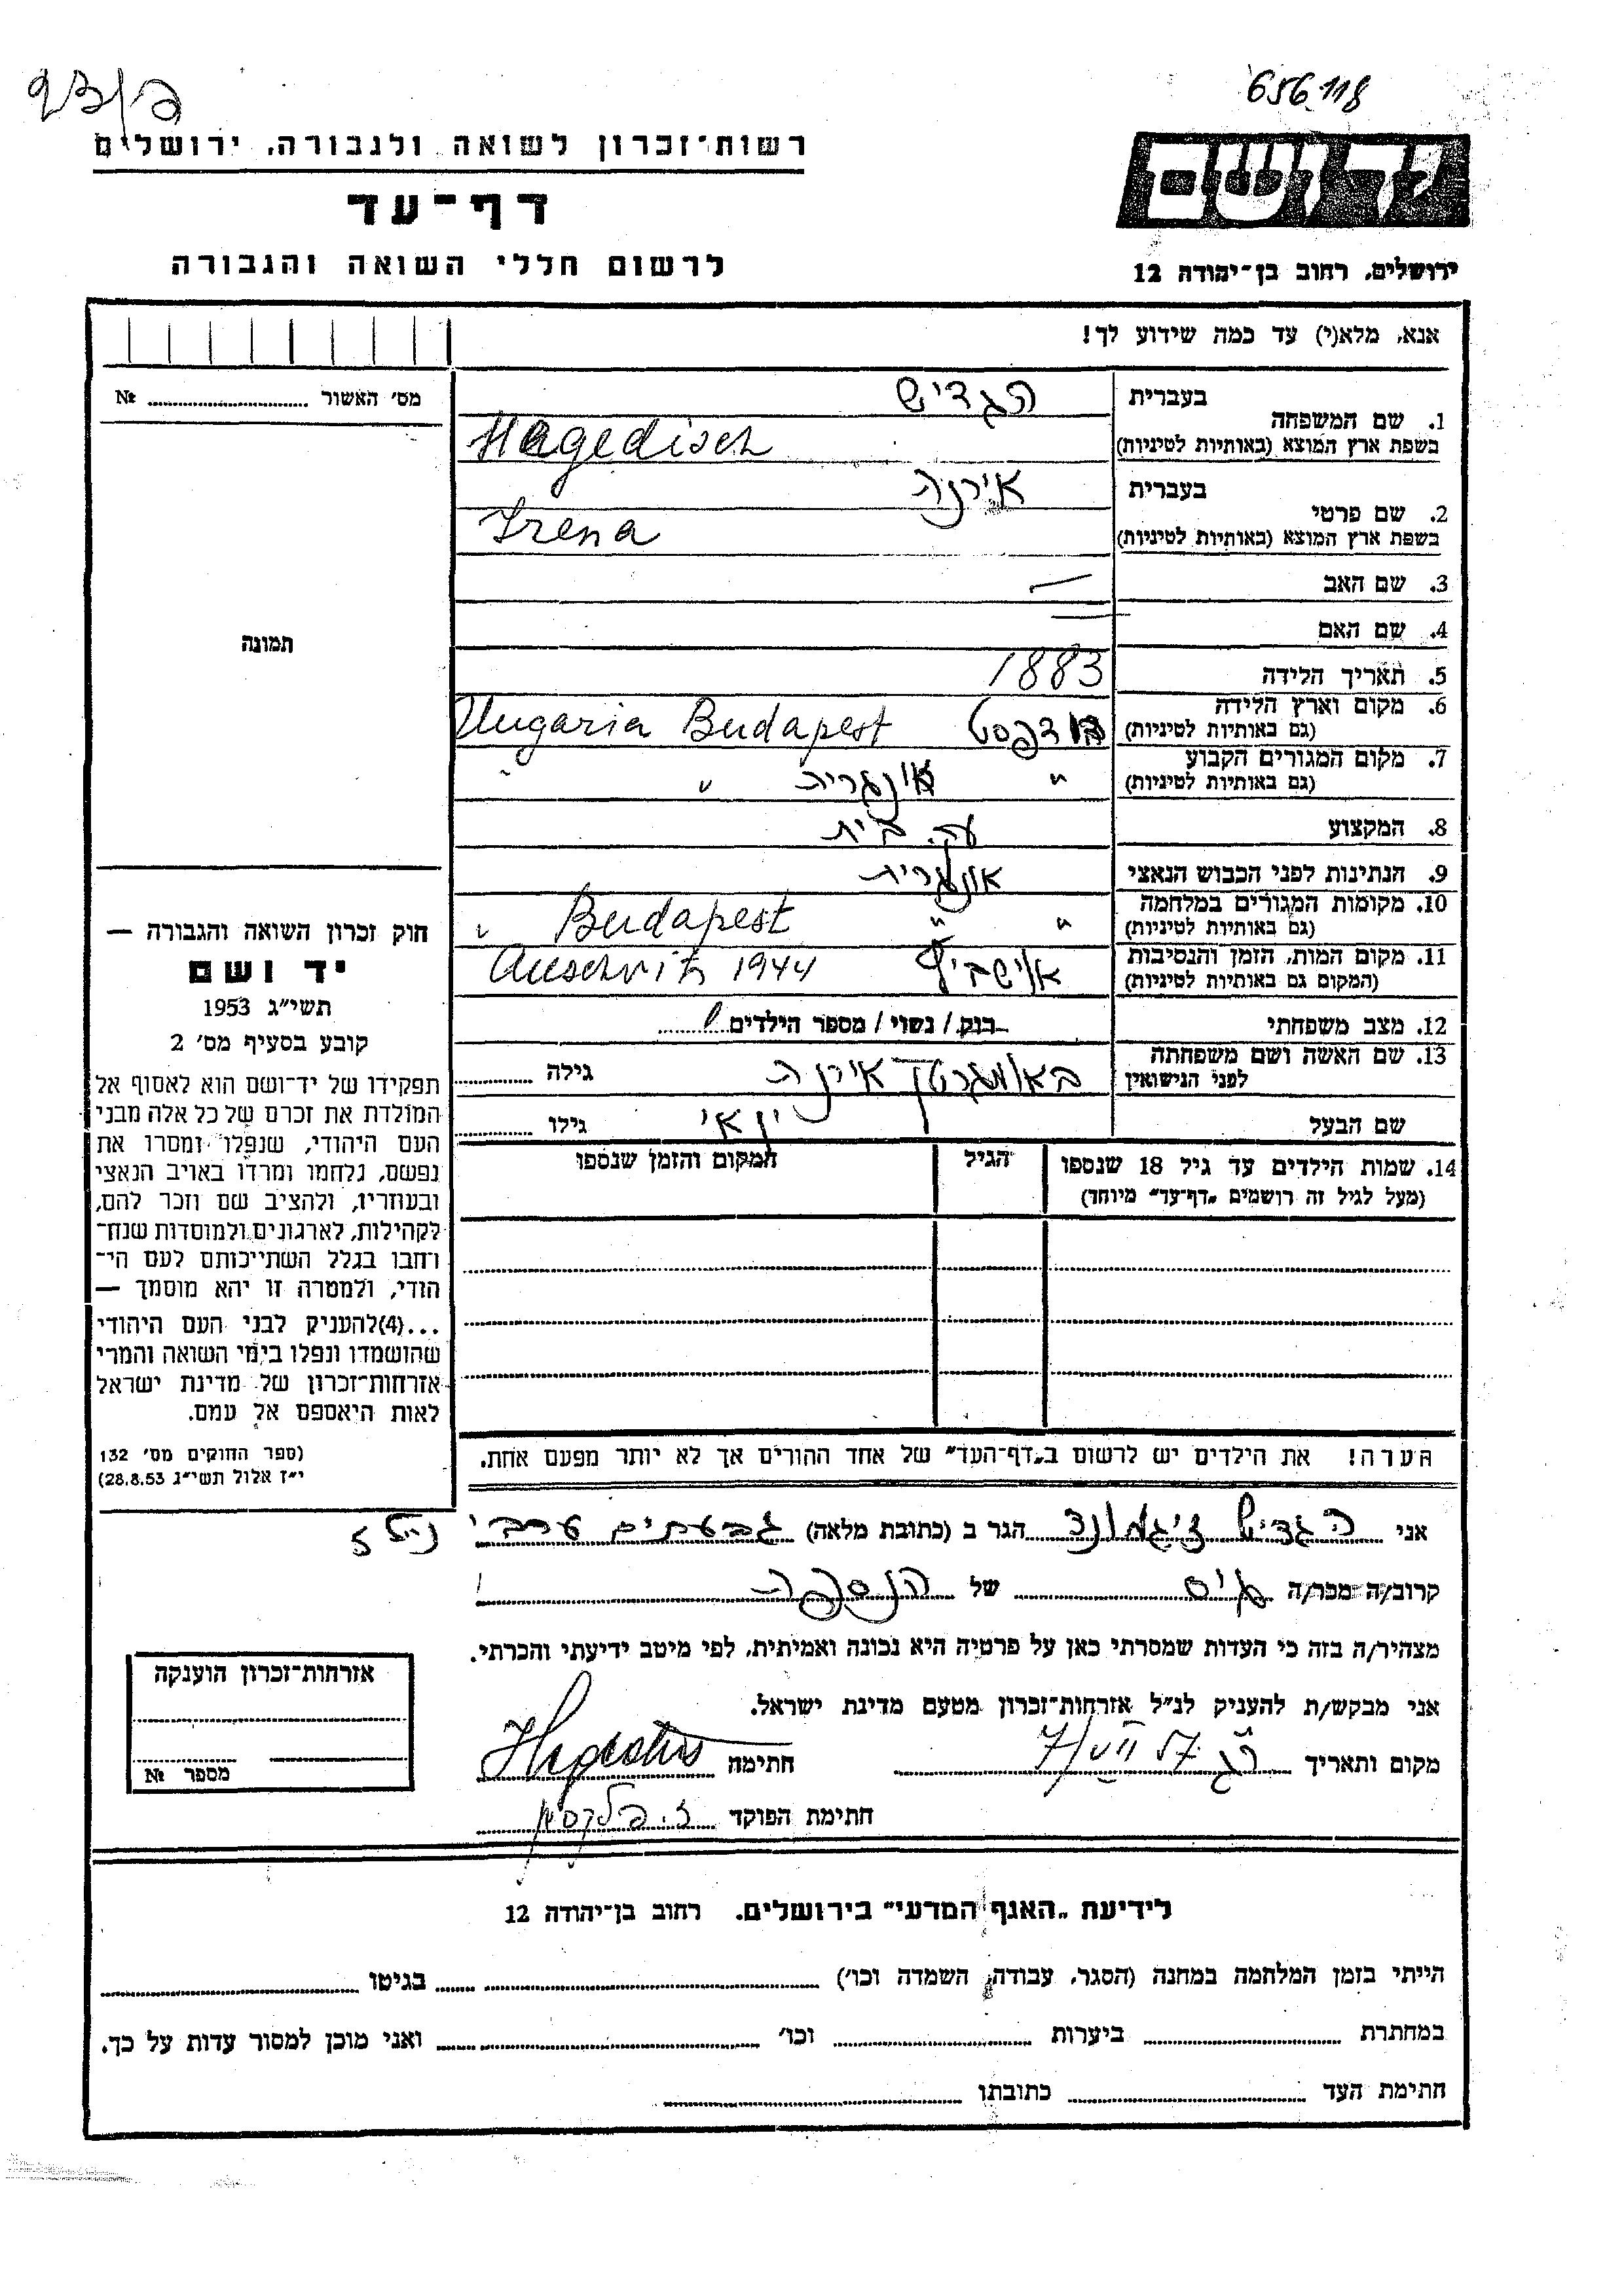 656118
רשות-זכרון לשואה ולגבורה, ירושלים
דף-עד
לרשום חללי השואה והגבורה
יד ושם
ירושלים, רחוב בן-יהודה 12
אנא, מלא(י) עד כמה שידוע לך!
מס׳ האשור № 
תמונה
1. שם המשפחה בעברית הגדיש
בשפת ארץ המוצא (באותיות לטיניות) Hagedisch
2. שם פרטי בעברית אירנה
בשפת ארץ המוצא (באותיות לטיניות) Irena
3. שם האב —
4. שם האם —
5. תאריך הלידה 1883
6. מקום וארץ הלידה (גם באותיות לטיניות) בודפסט Ungaria Budapest
7. מקום המגורים הקבוע (גם באותיות לטיניות) " אונגריה " "
8. המקצוע עק. בית
9. הנתינות לפני הכבוש הנאצי אונגרית
10. מקומות המגורים במלחמה (גם באותיות לטיניות) " " Budapest "
11. מקום המות, הזמן והנסיבות (המקום גם באותיות לטיניות) אושביץ Auschwitz 1944
12. מצב משפחתי רווק / נשוי / מספר הילדים
13. שם האשה ושם משפחתה לפני הנישואין באומגרטן אירנה גילה
שם הבעל גילו
14. שמות הילדים עד גיל 18 שנספו (מעל לגיל זה רושמים „דף-עד” מיוחד)
הגיל
המקום והזמן שנספו
הערה! את הילדים יש לרשום ב„דף-העד” של אחד ההורים אך לא יותר מפעם אחת.
חוק זכרון השואה והגבורה —
יד ושם
תשי״ג 1953
קובע בסעיף מס׳ 2
תפקידו של יד-ושם הוא לאסוף אל
המולדת את זכרם של כל אלה מבני
העם היהודי, שנפלו ומסרו את
נפשם, נלחמו ומרדו באויב הנאצי
ובעוזריו, ולהציב שם וזכר להם,
לקהילות, לארגונים ולמוסדות שנח-
רחבו בגלל השתייכותם לעם הי-
הודי, ולמטרה זו יהא מוסמך —
...(4)להעניק לבני העם היהודי
שהושמדו ונפלו בימי השואה והמרי
אזרחות-זכרון של מדינת ישראל
לאות היאספם אל עמם.
(ספר החוקים מס׳ 132
י״ז אלול תשי״ג 28.8.53)
אני הגדיש זיגמונד הגר ב (כתובת מלאה) גבעתיים ערבי
קרוב/ה מכר/ה של הנספה
מצהיר/ה בזה כי העדות שמסרתי כאן על פרטיה היא נכונה ואמיתית, לפי מיטב ידיעתי והכרתי.
אני מבקש/ת להעניק לנ״ל אזרחות-זכרון מטעם מדינת ישראל.
מקום ותאריך חתימה
חתימת הפוקד
אזרחות-זכרון הוענקה
מספר №
לידיעת „האגף המדעי” בירושלים. רחוב בן-יהודה 12
הייתי בזמן המלחמה במחנה (הסגר, עבודה, השמדה וכו׳) בגיטו
במחתרת ביערות וכו׳ ואני מוכן למסור עדות על כך.
חתימת העד כתובתו